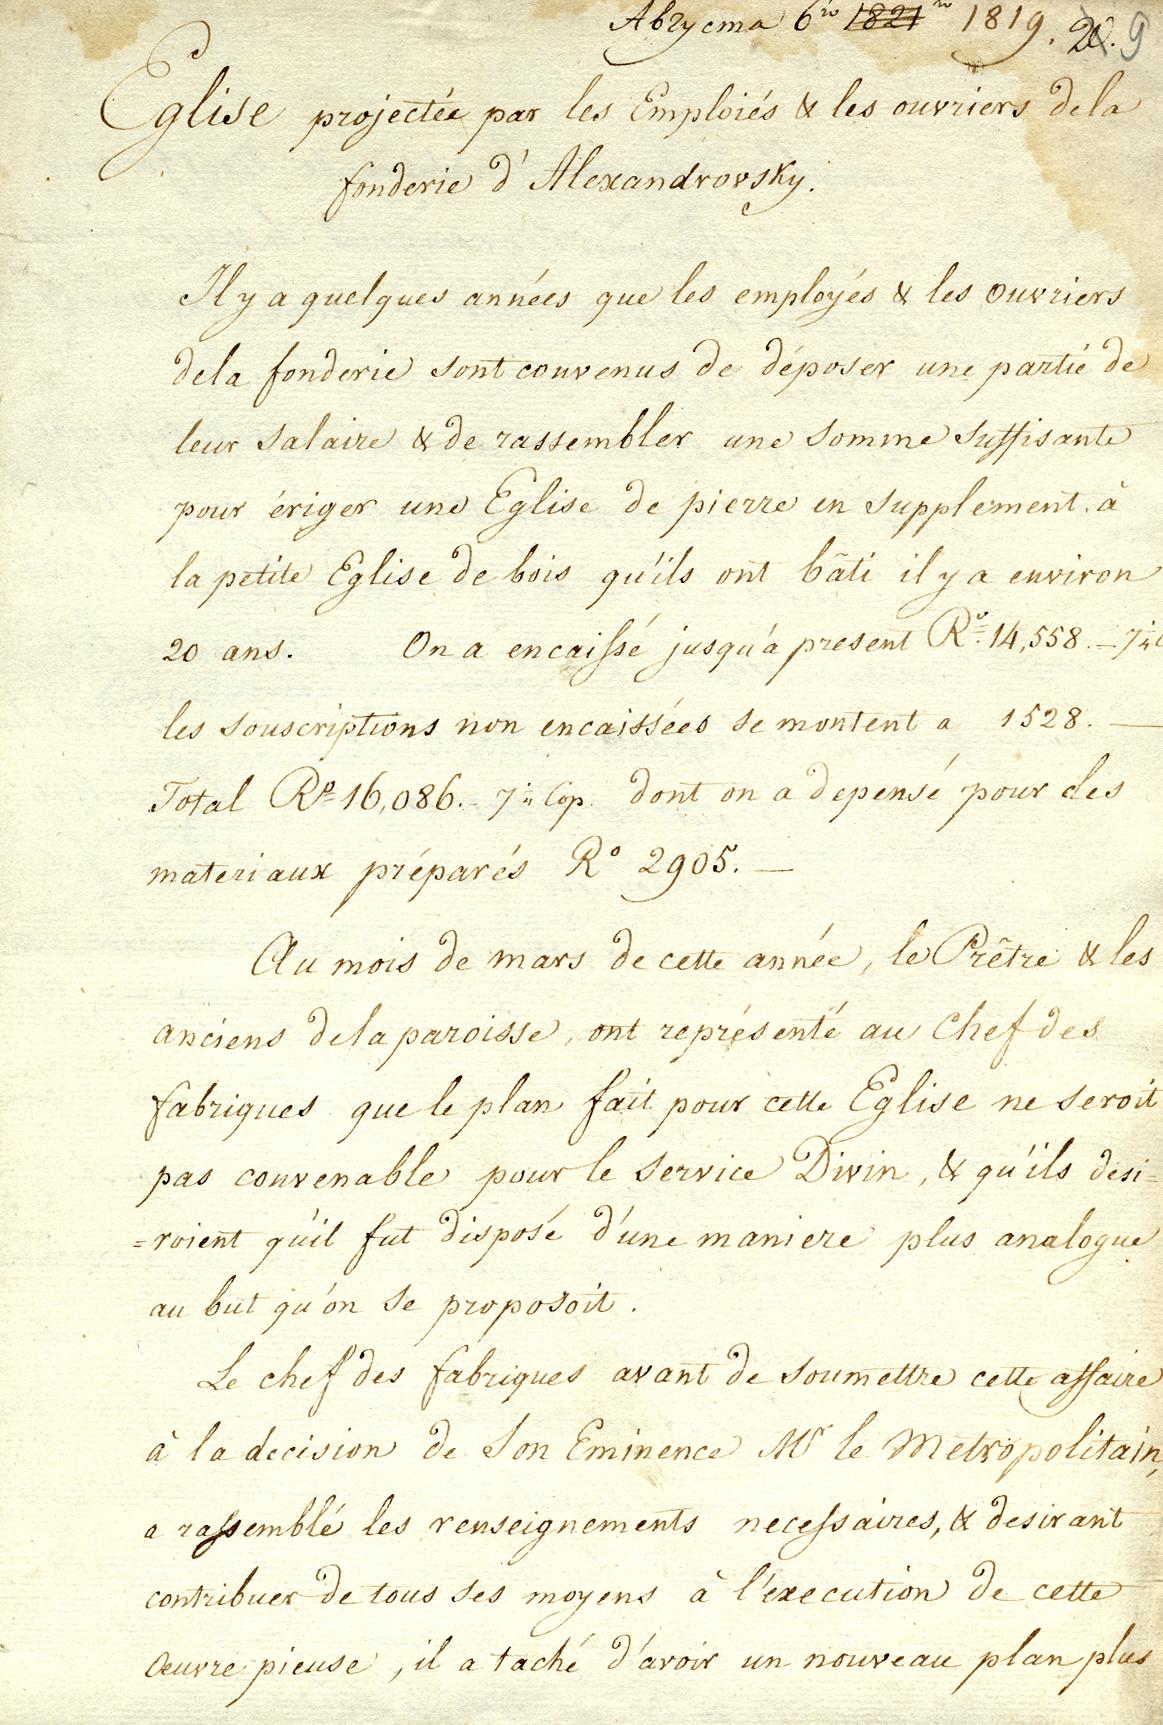 Августа 6го 1821го 1819. 20. 9
Eglise projectée par les Emploiés & les ouvriers dela
fonderie d'Alexandrovsky.
Il y a quelques années que les employés & les ouvriers
dela fonderie sont convenus de déposer une partie de
leur salaire & de rassembler une somme suffisante
pour ériger une Eglise de pierre en supplement à
la petite Eglise de bois qu'ils ont bâti il y a environ
20 ans. On a encaissé jusqu'à present Ro. 14,558. – 7
les souscriptions non encaissées se montent a 1528. —
Total Ro 16,086. – 7 Cop. dont on a depensé pour des
materiaux préparés Ro 2905. —
Au mois de mars de cette année, le Prêtre & les
anciens dela paroisse, ont représenté au Chef des
fabriques que le plan fait pour cette Eglise ne seroit
pas convenable pour le service Divin, & qu'ils desi=
=roient qu'il fut disposé d'une maniere plus analogue
au but qu'on se proposoit.
Le chef des fabriques avant de soumettre cette affaire
à la decision de Son Eminence Mr le Metropolitain,
a rassemblé les renseignements necessaires, & desirant
contribuer de tous ses moyens à l'execution de cette
Œuvre pieuse, il a taché d'avoir un nouveau plan plus